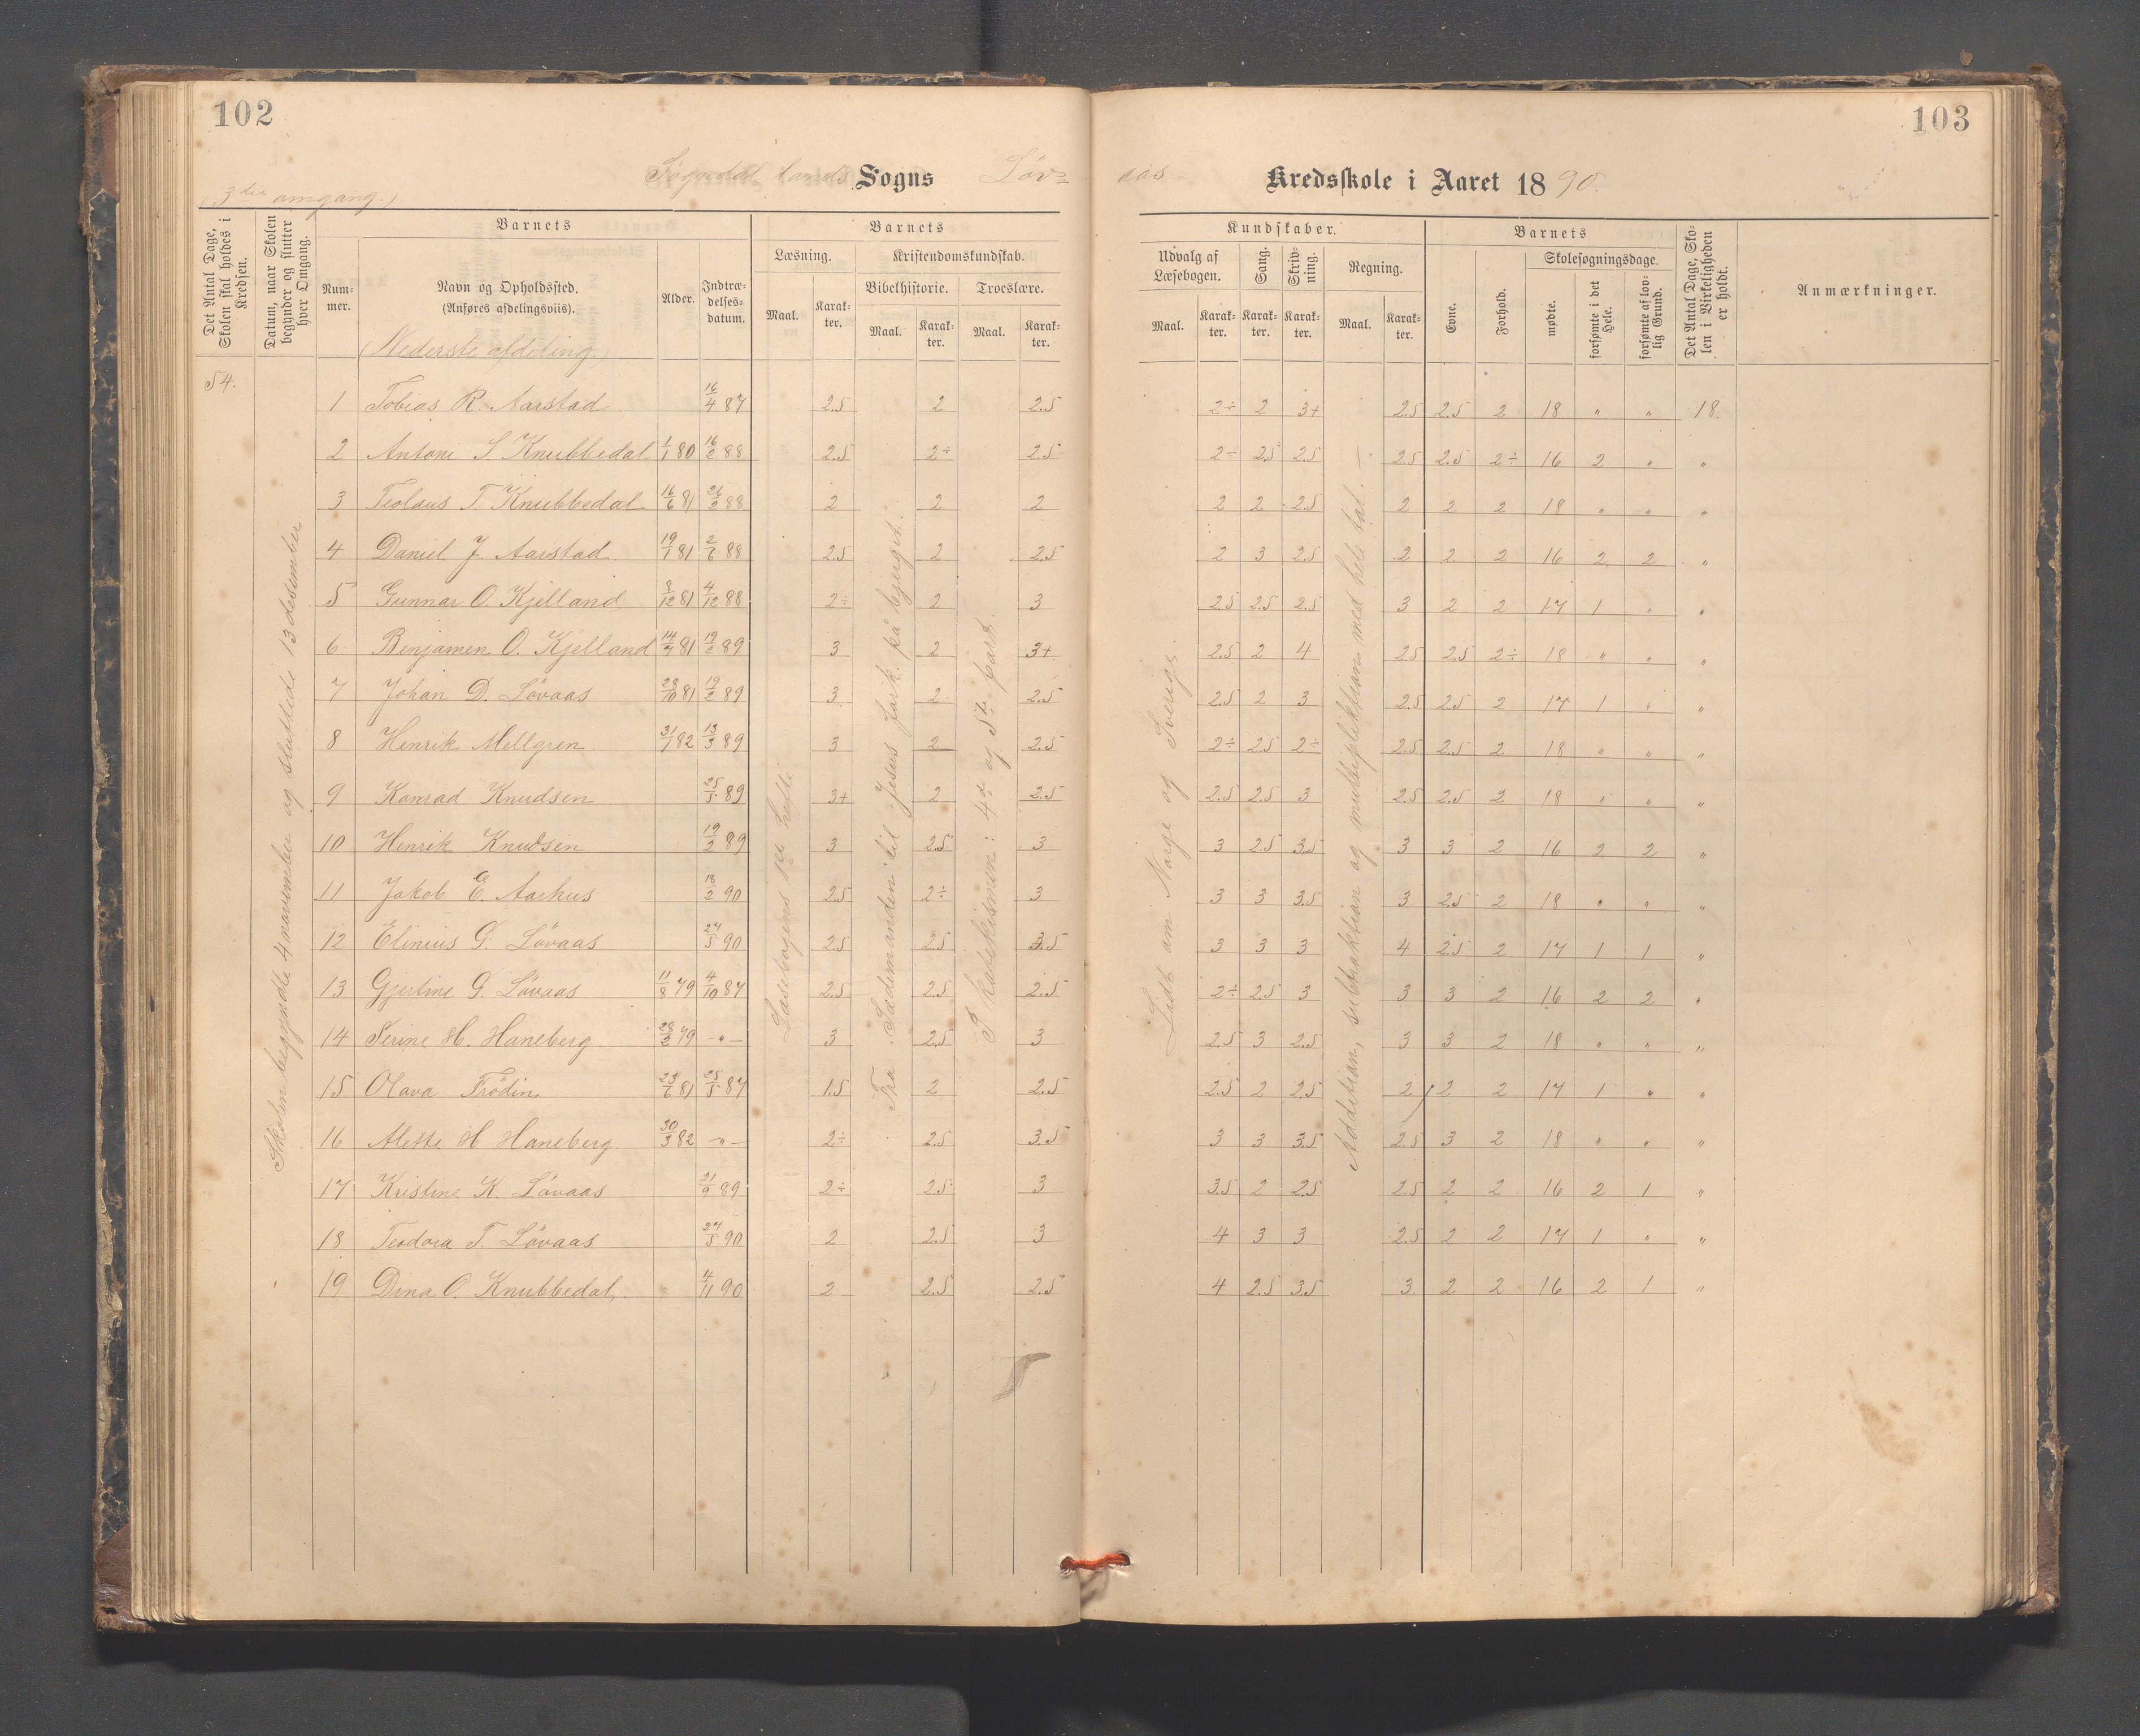 102
103
Sogndal lands Sogns Löv=
aas Kredsskole i Aaret 1890.
(3die omgang.)
Det Antal Dage, Skolen skal holdes i Kredsen.
Datum, naar Skolen begynder og slutter hver Omgang.
Barnets
Nummer.
Navn og Opholdssted. (Anføres afdelingsviis).
Alder.
Indtrædelsesdatum.
Barnets
Læsning.
Maal.
Karakter.
Kristendomskundskab.
Bibelhistorie.
Maal.
Karakter.
Troeslære.
Maal.
Karakter.
Kundskaber.
Udvalg af Læsebogen.
Maal.
Karakter.
Sang.
Karakter.
Skrivning.
Karakter.
Regning.
Maal.
Karakter.
Barnets
Evne.
Forhold.
Skolesøgningsdage.
mødte.
forsømte i det Hele.
forsømte af lovlig Grund.
Det Antal Dage, Skolen i Virkeligheden er holdt.
Anmærkninger.
(Nederste afdeling.)
54.
Skolen begyndte 4 november og sluttede 13 desember
Læsebogens 1ste hefte
Fra Sædemanden til Jesus fark. på bjerget.
I katekismen: 4de og 5te part.
Lidt om Norge og Sverige.
Addition, subtraktion og multipliktion med hele tal.
1 Tobias R Aarstad 16/4 87 2.5 2 2.5 2÷ 2 3+ 2.5 2.5 2 18 " " 18.
2 Antoni S Knubbedal 1/1 80 16/2 88 2.5 2÷ 2.5 2÷ 2.5 2.5 2.5 2.5 2÷ 16 2 " "
3 Teolaus T Knubbedal 16/6 81 26/2 88 2 2 2 2 2 2.5 2 2 2 18 " " "
4 Daniel J. Aarstad 19/1 81 2/6 88 2.5 2 2.5 2 3 2.5 2 2 2 16 2 2 "
5 Gunnar O. Kjelland 8/12 81 4/12 88 2÷ 2 3 2.5 2.5 2.5 3 2 2 17 1 " "
6 Benjamen O. Kjelland 14/7 81 19/2 89 3 2 3+ 2.5 2 4 2.5 2.5 2÷ 18 " " "
7 Johan D. Lövaas 28/10 81 19/2 89 3 2 2.5 2.5 2 3 2.5 2.5 2 17 1 " "
8 Henrik Mellgren 31/1 82 13/3 89 3 2 2.5 2÷ 2.5 2÷ 2.5 2.5 2 18 " " "
9 Konrad Knudsen 25/5 89 3+ 2 2.5 2.5 2.5 3 2.5 2.5 2 18 " " "
10 Henrik Knudsen 19/2 89 3 2.5 3 3 2.5 3.5 3 3 2 16 2 2 "
11 Jakob E. Aarhus 18/2 90 2.5 2÷ 3 3 3 3.5 3 2.5 2 18 " " "
12 Elinius G. Lövaas 27/5 90 2.5 2.5 3.5 3 3 3 4 2.5 2 17 1 1 "
13 Gjertine G. Lövaas 11/8 79 4/10 87 2.5 2.5 2.5 2÷ 2.5 3 3 3 2 16 2 2 "
14 Serine H. Haneberg 28/2 79 -"- 3 2.5 3 2.5 3 2.5 3 3 2 18 " " "
15 Olava Frödin 23/6 81 25/5 87 1.5 2 2.5 2.5 2 2.5 2 2 2 17 1 " "
16 Alette H Haneberg 30/3 82 -"- 2÷ 2.5 3.5 3 3 3.5 2.5 3 2 18 " " "
17 Kristine K. Lövaas 21/9 89 2÷ 2.5 3 3.5 2 2.5 2.5 2 2 16 2 1 "
18 Teodora T. Lövaas 27/5 90 2 2.5 3 4 3 3 2.5 2 2 17 1 " "
19 Dina O. Knubbedal 4/11 90 2 2.5 2.5 4 2.5 3.5 3 2 2 16 2 1 "